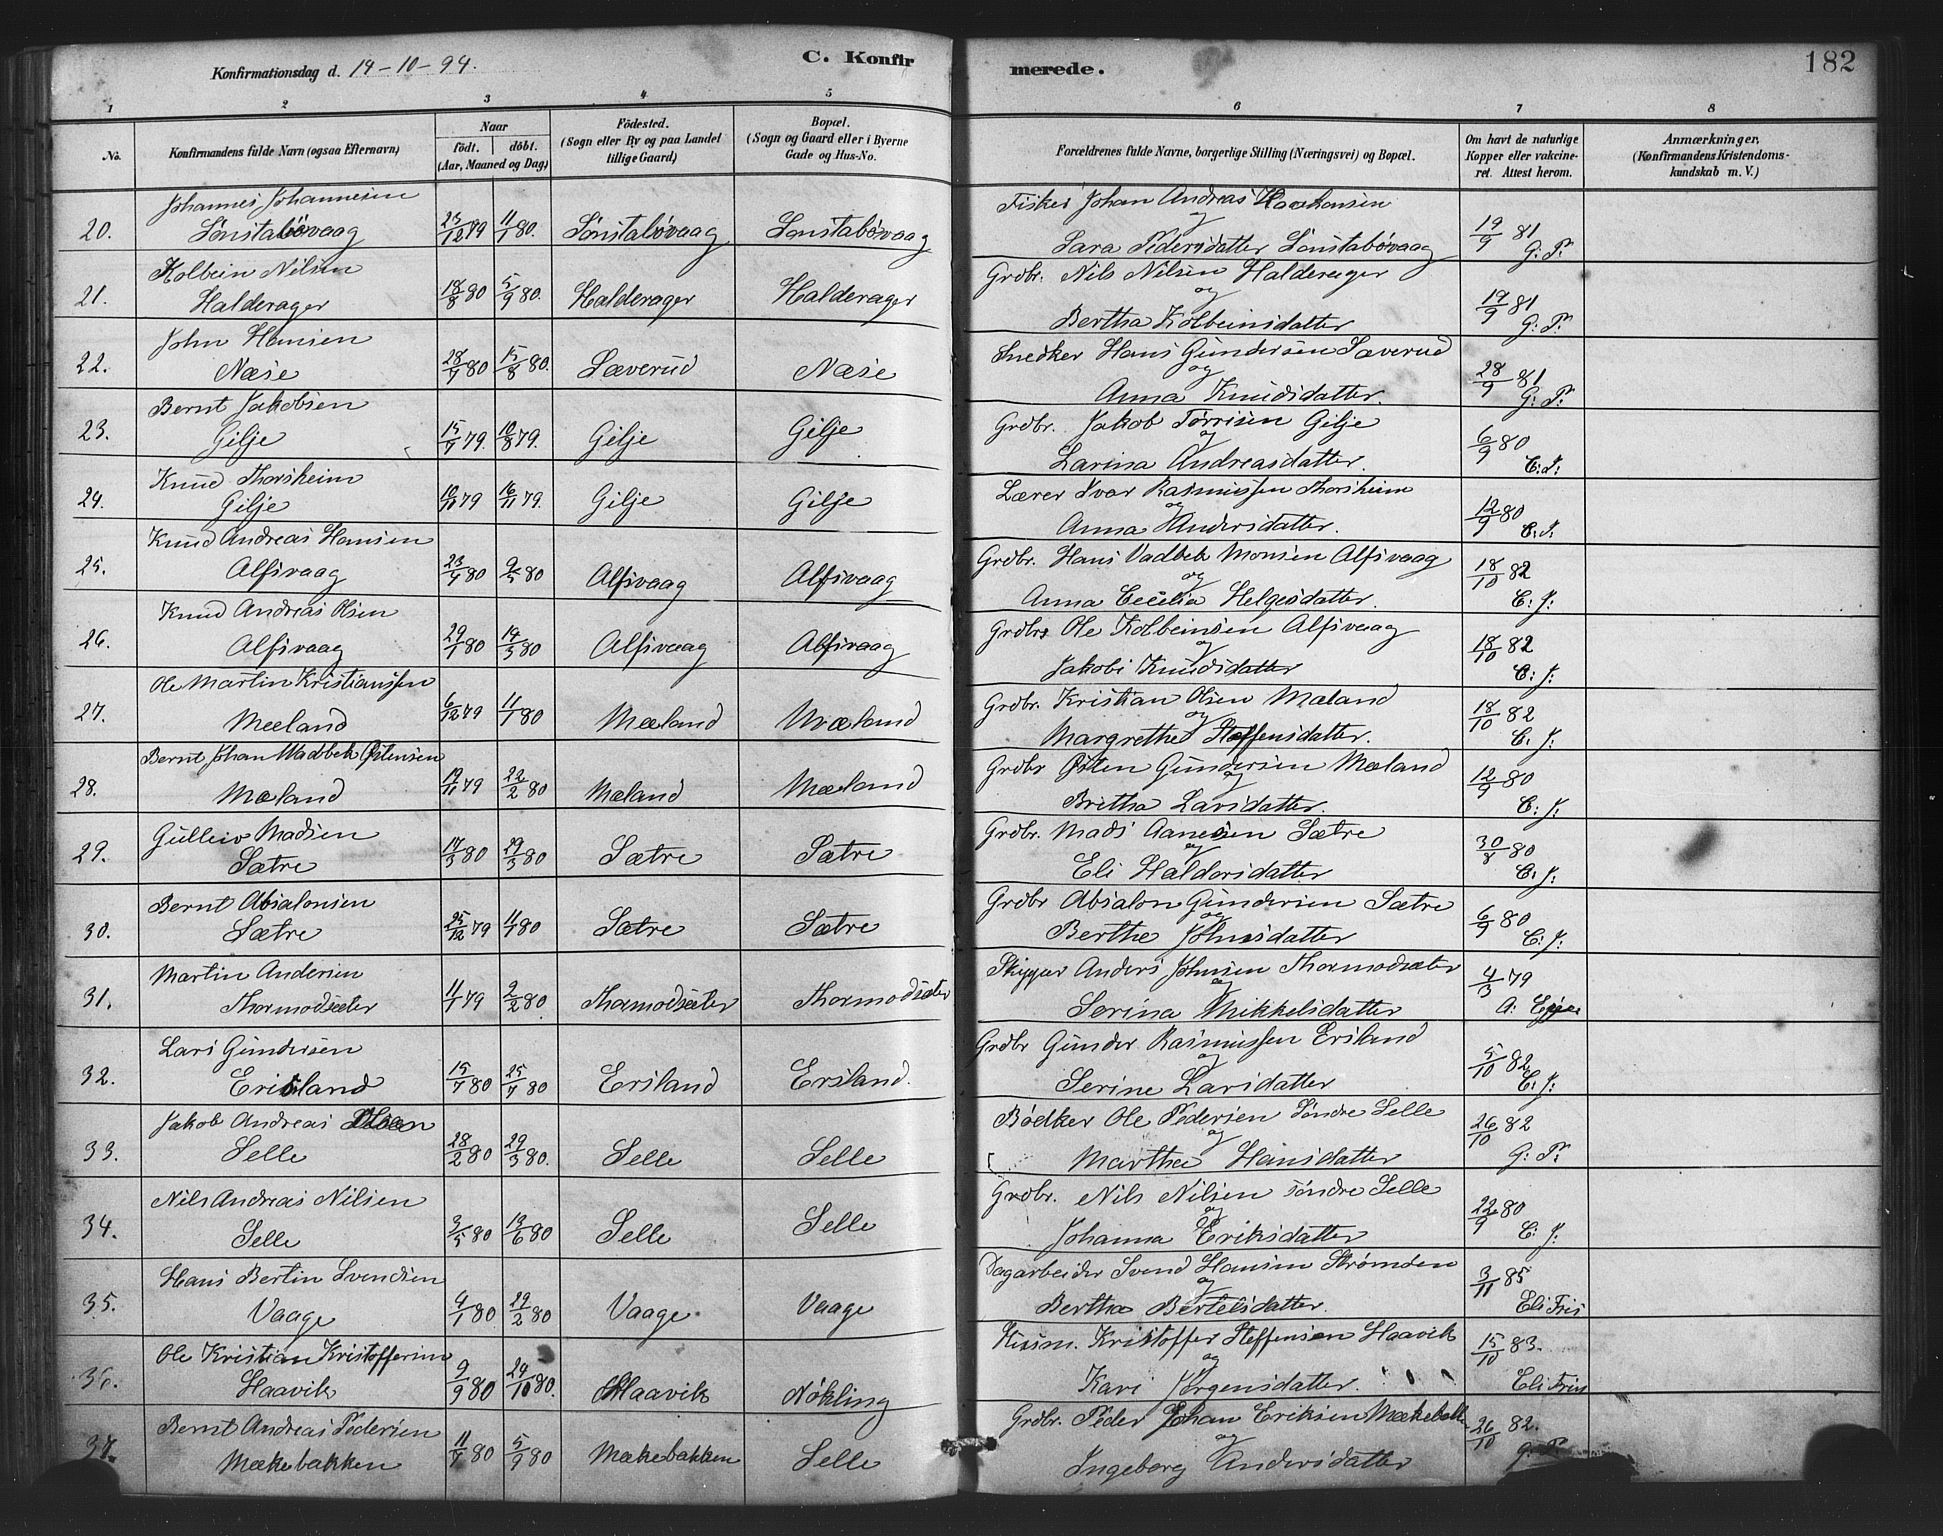 182
Konfirmationsdag d. 14-10-94. C. Konfirmerede.
1 2 3 4 5 6 7 8
No. Konfirmandens fulde Navn (ogsaa Efternavn) Naar født. døbt. (Aar, Maaned og Dag) Fødested. (Sogn eller By og paa Landet tillige Gaard) Bopæl. (Sogn og Gaard eller i Byerne Gade og Hus-No. Forældrenes fulde Navne, borgerlige Stilling (Næringsvei) og Bopæl. Om havt de naturlige Kopper eller vakcineret. Attest herom. Anmærkninger, (Konfirmandens Kristendomskundskab m. V.)
Johannes Johannesen Fisker Johan Andreas
20. Sønstabøvaag 23/12 79 11/1 80. Sønstabøvaag Sønstabøvaag og 19/9 81
Sara Pedersdatter Sønstabøvaag G. P.
Kolbein Nilsen Grdbr. Nils Nilsen Halderager
21. Halderager 18/8 80 5/9 80. Halderager Halderager og 19/9 81
Bertha Kolbeinsdatter G. P.
John Hansen Snedker Hans Gundersen Sæverud
22. Næse 28/7 80 15/8 80. Sæverud Næse og 28/9 81
Anna Knudsdatter. G. P.
Bernt Jakobsen Grdbr. Jakob Tørrisen Gilje
23. Gilje 15/7 79. 10/8 79. Gilje Gilje og 6/9 80
Larina Andreasdatter. C. J.
Knud Thorsheim Lærer Ivar Rasmussen Thorsheim
24. Gilje 10/11 79 16/11 79. Gilje Gilje og 12/9 80
Anna Andersdatter. C. J.
Knud Andreas Hansen Grdbr. Hans Vadbek Monsen Alfsvaag
25. Alfsvaag 23/4 80 9/5 80 Alfsvaag Alfsvaag og 18/10 82
Anna Cecilia Helgesdatter. C. J.
Knud Andreas Olsen Grdbr. Ole Kolbeinsen Alfsvaag
26. Alfsvaag 29/1 80 14/3 80 Alfsvaag Alfsvaag og 18/10 82
Jakobi Knudsdatter C. J.
Ole Martin Kristianssen Grdbr. Kristian Olsen Mæland
27. Mæland 6/12 79 11/1 80 Mæland Mæland og 18/10 82
Margrethe Steffensdatter. C. J.
Bernt Johan Madbek Østensen Grdbr Østen Gundersen Mæland
28. Mæland 19/11 79 22/2 80 Mæland Mæland og 12/9 80
Britha Larsdatter. C. J.
Gulleiv Madsen Grdbr. Mads Aanesen Sætre
29. Sætre 14/3 80 29/3 80 Sætre Sætre og 30/8 80
Eli Haldorsdatter C. J.
Bernt Absalonsen Grdbr Absalon Gundersen Sætre
30. Sætre 25/12 79 11/1 80 Sætre Sætre og 6/9 80
Berthe Johnsdatter C. J.
Martin Andersen Skipper Anders Johnsen Thormodsæter
31. Thormodsæter 11/1 79 2/2 80 Thormodsæter Thormodsæter og 4/3 79
Serina Mikkelsdatter A.
Lars Gundersen Grdbr Gunder Rasmussen Ersland
32. Ersland 15/7 80 25/7 80 Ersland Ersland. og 5/10 82
Serine Larsdatter C. J.
Jakob Andreas Olsen Bødker Ole Pedersen Søndre Selle
33. Selle 28/2 80 29/3 80. Selle Selle og 26/10 82
Martha Hansdatter G. P.
Nils Andreas Nilsen Grdbr. Nils Nilsen søndre Selle
34. Selle 3/5 80 13/6 80 Selle Selle og 22/9 80
Johanna Eriksdatter C. J.
Hans Bertin Svendsen Dagarbeider Svend Hansen Strømden
35. Vaage 9/1 80 29/2 80 Vaage Vaage og 3/11 85
Bertha Bertelsdatter. Eli Friis
Ole Kristian Kristoffersen Husm. Kristoffer Steffensen Haavik
36. Haavik 9/9 80 24/10 80. Haavik Nökling og 15/10 83.
Kari Jørgensdatter. Eli Friis
Bernt Andreas Pedersen Grdbr. Peder Johan Eriksen Mækebakk
37. Mækebakken 11/7 80 5/9 80 Mækebakken Selle og 26/10 82.
Ingeborg Andersdatter G. P.